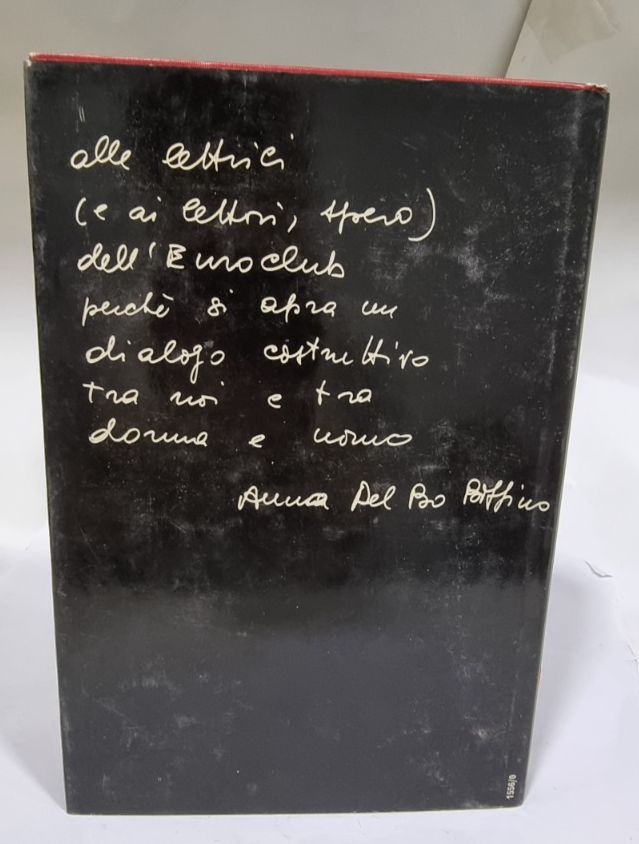 alle lettrici
(e ai lettori, spero)
dell'Euroclub
perchè si apra un
dialogo costruttivo
tra noi e tra
donna e uomo
Anna Del Bo Boffino
1556/0